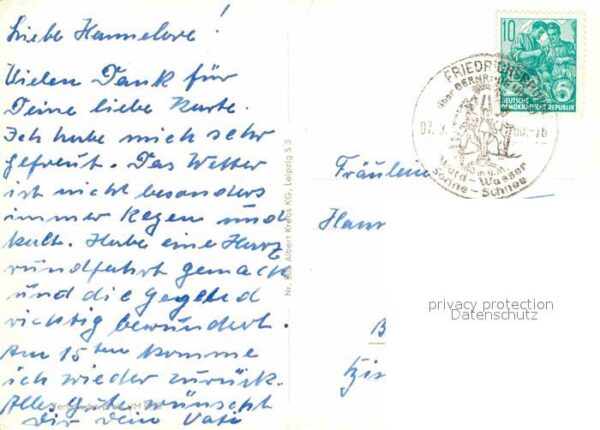 Liebe Hannelore!
Vielen Dank für
Deine liebe Karte.
Ich habe mich sehr
gefreut. Das Wetter
ist nicht besonders
immer Regen und
kalt. Habe eine Harz
rundfahrt gemacht
und die Gegend
richtig bewundert.
Am 15ten komme
ich wieder zurück.
Alles Gute wünscht
Dir Dein Vati
Albert Krebs KG, Leipzig S 3
10
DEUTSCHE
DEMOKRATISCHE REPUBLIK
FRIEDRICHSBRUNN
über
Wald - Wasser
Sonne - Schnee
Fräulein
privacy protection
Datenschutz